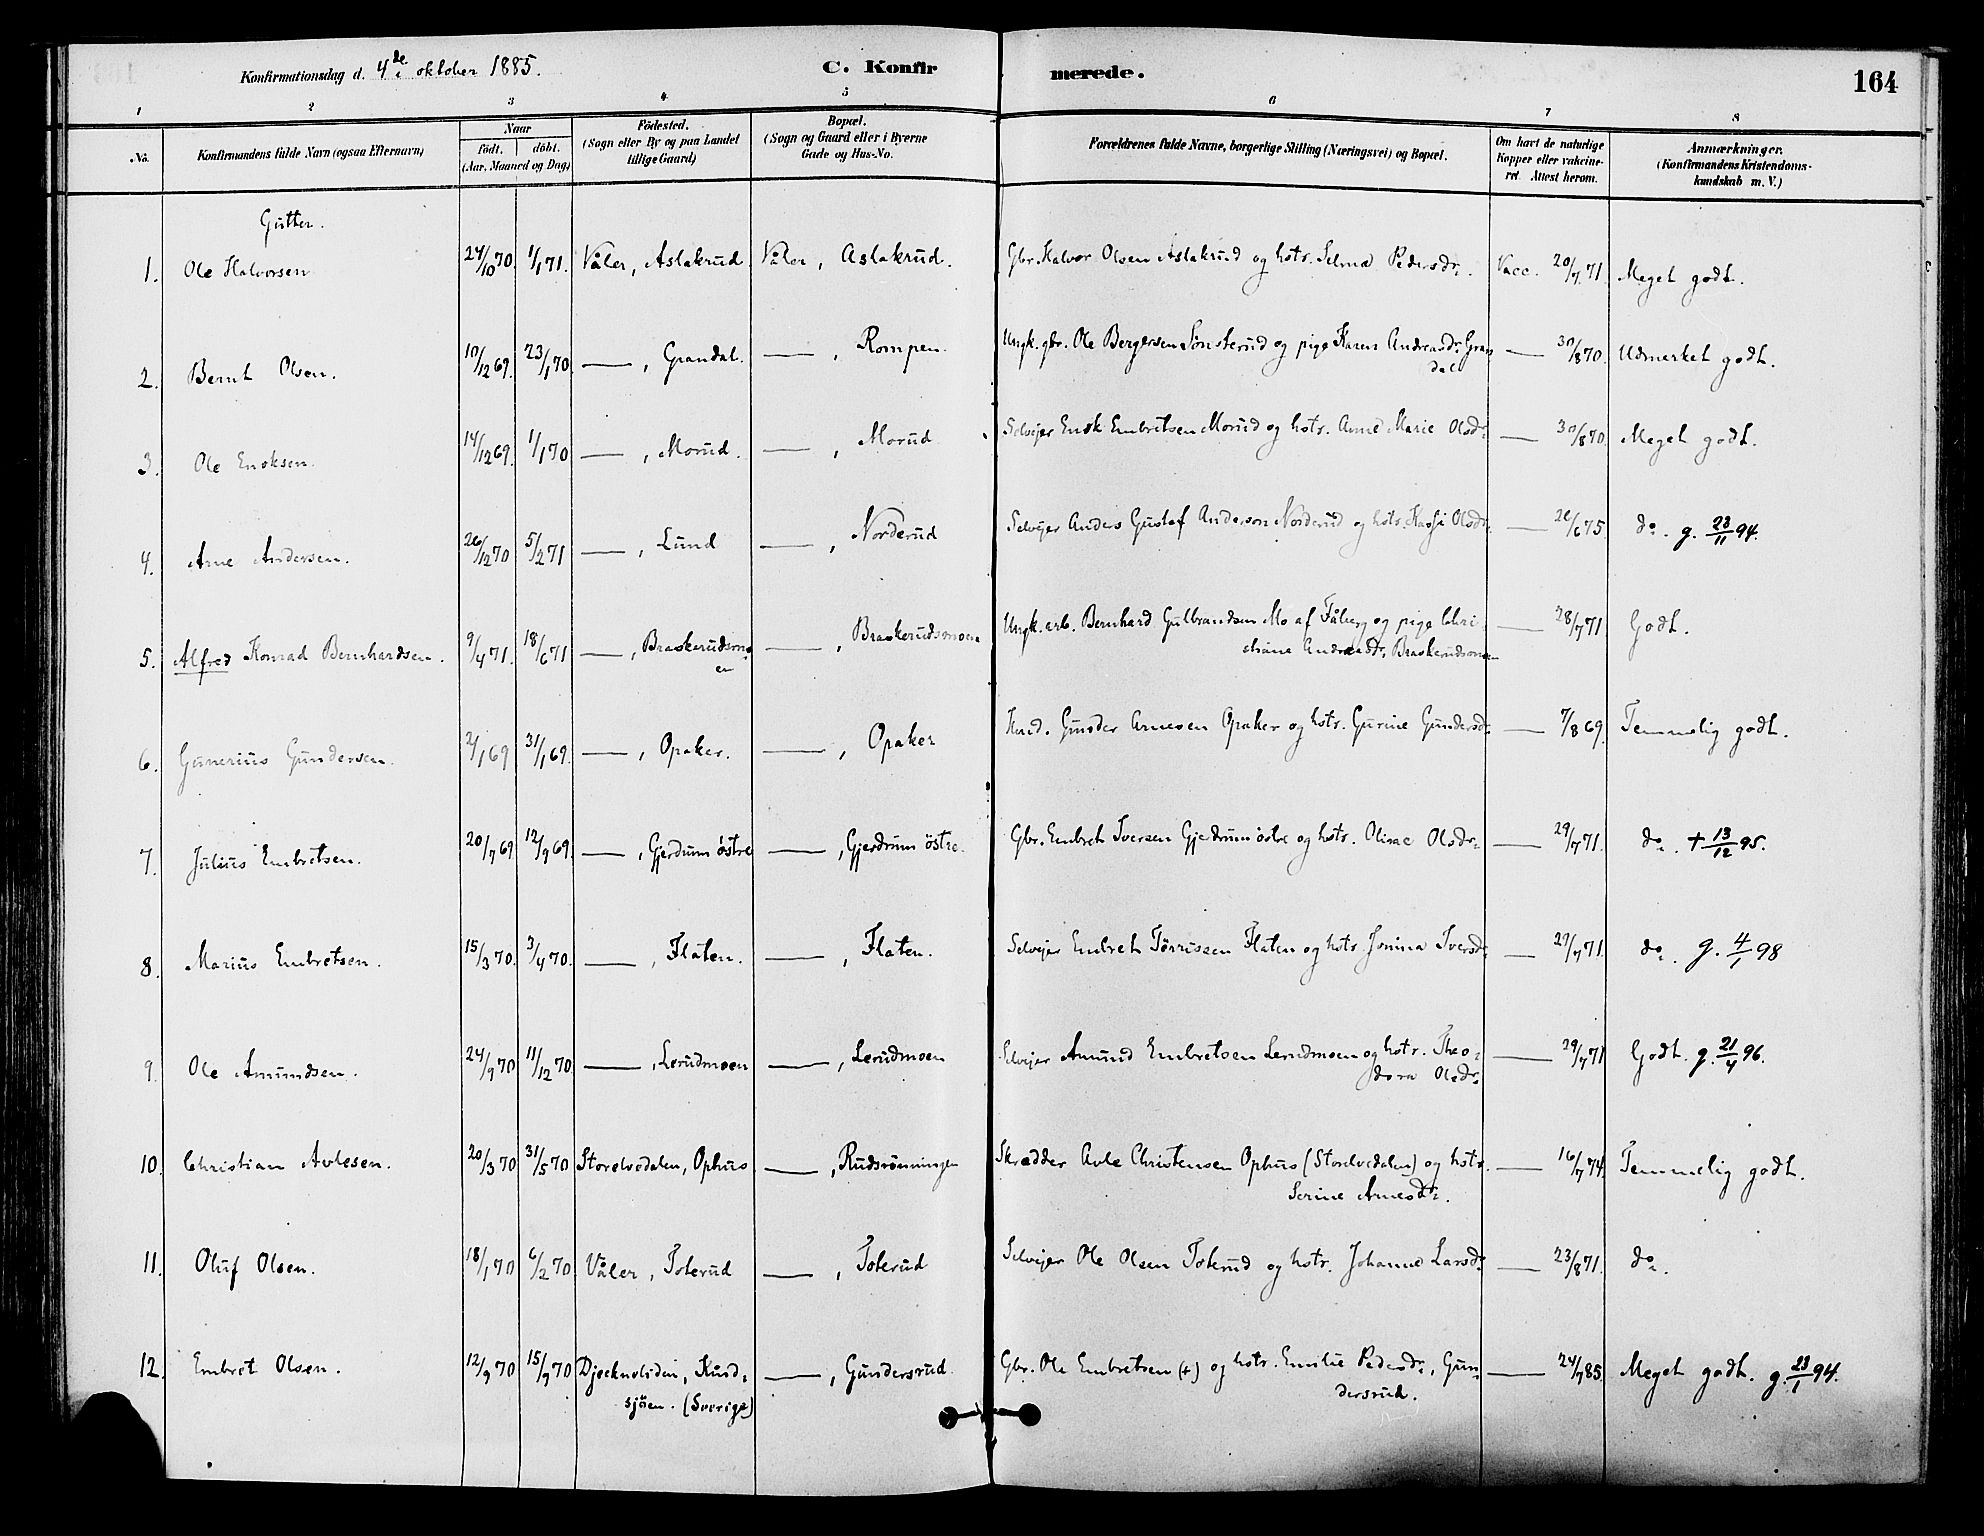 Konfirmationsdag d. 4de oktober 1885.
C. Konfirmerede.
164
1 2 3 4 5 6 7 8
No. Konfirmandens fulde Navn (ogsaa Efternavn) Naar födt. döbt. (Aar, Maaned og Dag) Födested. (Sogn eller By og paa Landet tillige Gaard) Bopæl. (Sogn og Gaard eller i Byerne Gade og Hus-No. Forældrenes fulde Navne, borgerlige Stilling (Næringsvei) og Bopæl. Om havt de naturlige Kopper eller vakcineret. Attest herom. Anmærkninger. (Konfirmandens Kristendomskundskab m. V.)
Gutter.
1. Ole Halvorsen 24/10 70. 1/1 71. Våler, Aslakrud Våler, Aslakrud. Gbr. Halvor Olsen Aslakrud og hstr. Selma Pedersdr. Vacc. 20/7 71 Meget godt.
2. Bernt Olsen. 10/12 69. 23/1 70. —, Grandal. —, Rompen. Ungk. gbr. Ole Bergersen Sønsterud og pige Karen Andreasdr. Gran
dal — 30/8 70. Udmerket godt.
3. Ole Enoksen. 14/12 69. 1/1 70 —, Morud. —, Morud. Selvejer Enok Embretsen Morud og hstr. Anne Marie Olsdr. — 30/8 70. Meget godt.
4. Arne Andersen. 26/12 70 5/2 71 —, Lund —, Norderud Selvejer Anders Gustaf Anderson Norderud og hstr. Olsdr. — 26/6 75. do. g. 23/11 94.
5. Alfred Konrad Bernhardsen. 9/4 71. 18/6 71 —, Braskerudsmo
en —, Braskerudsmoen Ungk. arb. Bernhard Gulbrandsen Mo af Fåberg og pige Chri-
stiane Andreasdr. Braskerudsmoen — 28/7 71 Godt.
6. Gunerius Gundersen. 2/1 69 31/1 69. —, Opaker. —, Opaker Gunder Arnesen Opaker og hstr. Gurine Gundersdr. — 7/8 69. Temmelig godt.
7. Julius Embretsen. 20/7 69 12/9 69. —, Gjerdrum östre —, Gjerdrum östre. Gbr. Embret Iversen Gjerdrum östre og hstr. Olsdr. — 29/7 71. do. + 13/12 95.
8. Marius Embretsen. 15/3 70. 3/4 70. —, Flaten. —, Flaten. Selvejer Embret Tørrissen Flaten og hstr. Jonina Iversdr. — 29/7 71. do. g. 4/1 98
9. Ole Amundsen. 24/9 70 11/12 70. —, Lerudmoen —, Lerudmoen Selvejer Amund Embretsen Lerudmoen og hstr. Theo-
dora Olsdr. — 29/7 71 Godt. g. 21/4 96.
10. Christian Avlesen. 20/3 70 31/5 70 Storelvedalen, Ophus —, Rudsrönningen Skrædder Avle Christensen Ophus (Storelvedalen) og hstr.
Serine Arnesdr. — 16/7 74. Temmelig godt.
11. Oluf Olsen. 18/1 70 6/2 70 Våler, Toterud —, Toterud Selvejer Ole Olsen Toterud og hstr. Johanne Larsdr. — 23/8 71. do.
12. Embret Olsen. 12/9 70 15/9 70 Djekneliden, Rund-
sjöen. (Sverige) —, Gundersrud. Gbr. Ole Embretsen (+) og hstr. Emilie Pedersdr., Gun-
dersrud. — 24/7 85. Meget godt. g. 23/1 94.